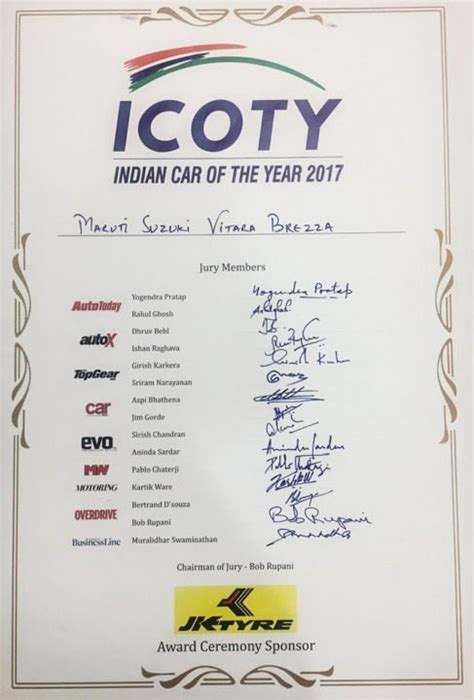 ICOTY
INDIAN CAR OF THE YEAR 2017
MARUTI SUZUKI VITARA BREZZA
Jury Members
AutoToday
Yogendra Pratap
Yogendra Pratap
Rahul Ghosh
autoX
Dhruv Behl
Ishan Raghava
TopGear
Girish Karkera
Sriram Narayanan
car
Aspi Bhathena
Jim Gorde
evo
Sirish Chandran
Aninda Sardar
Aninda Sardar
MW
Pablo Chaterji
MOTORING
Kartik Ware
OVERDRIVE
Bertrand D'souza
Bob Rupani
Bob Rupani
BusinessLine
Muralidhar Swaminathan
Chairman of Jury - Bob Rupani
JKTYRE
Award Ceremony Sponsor